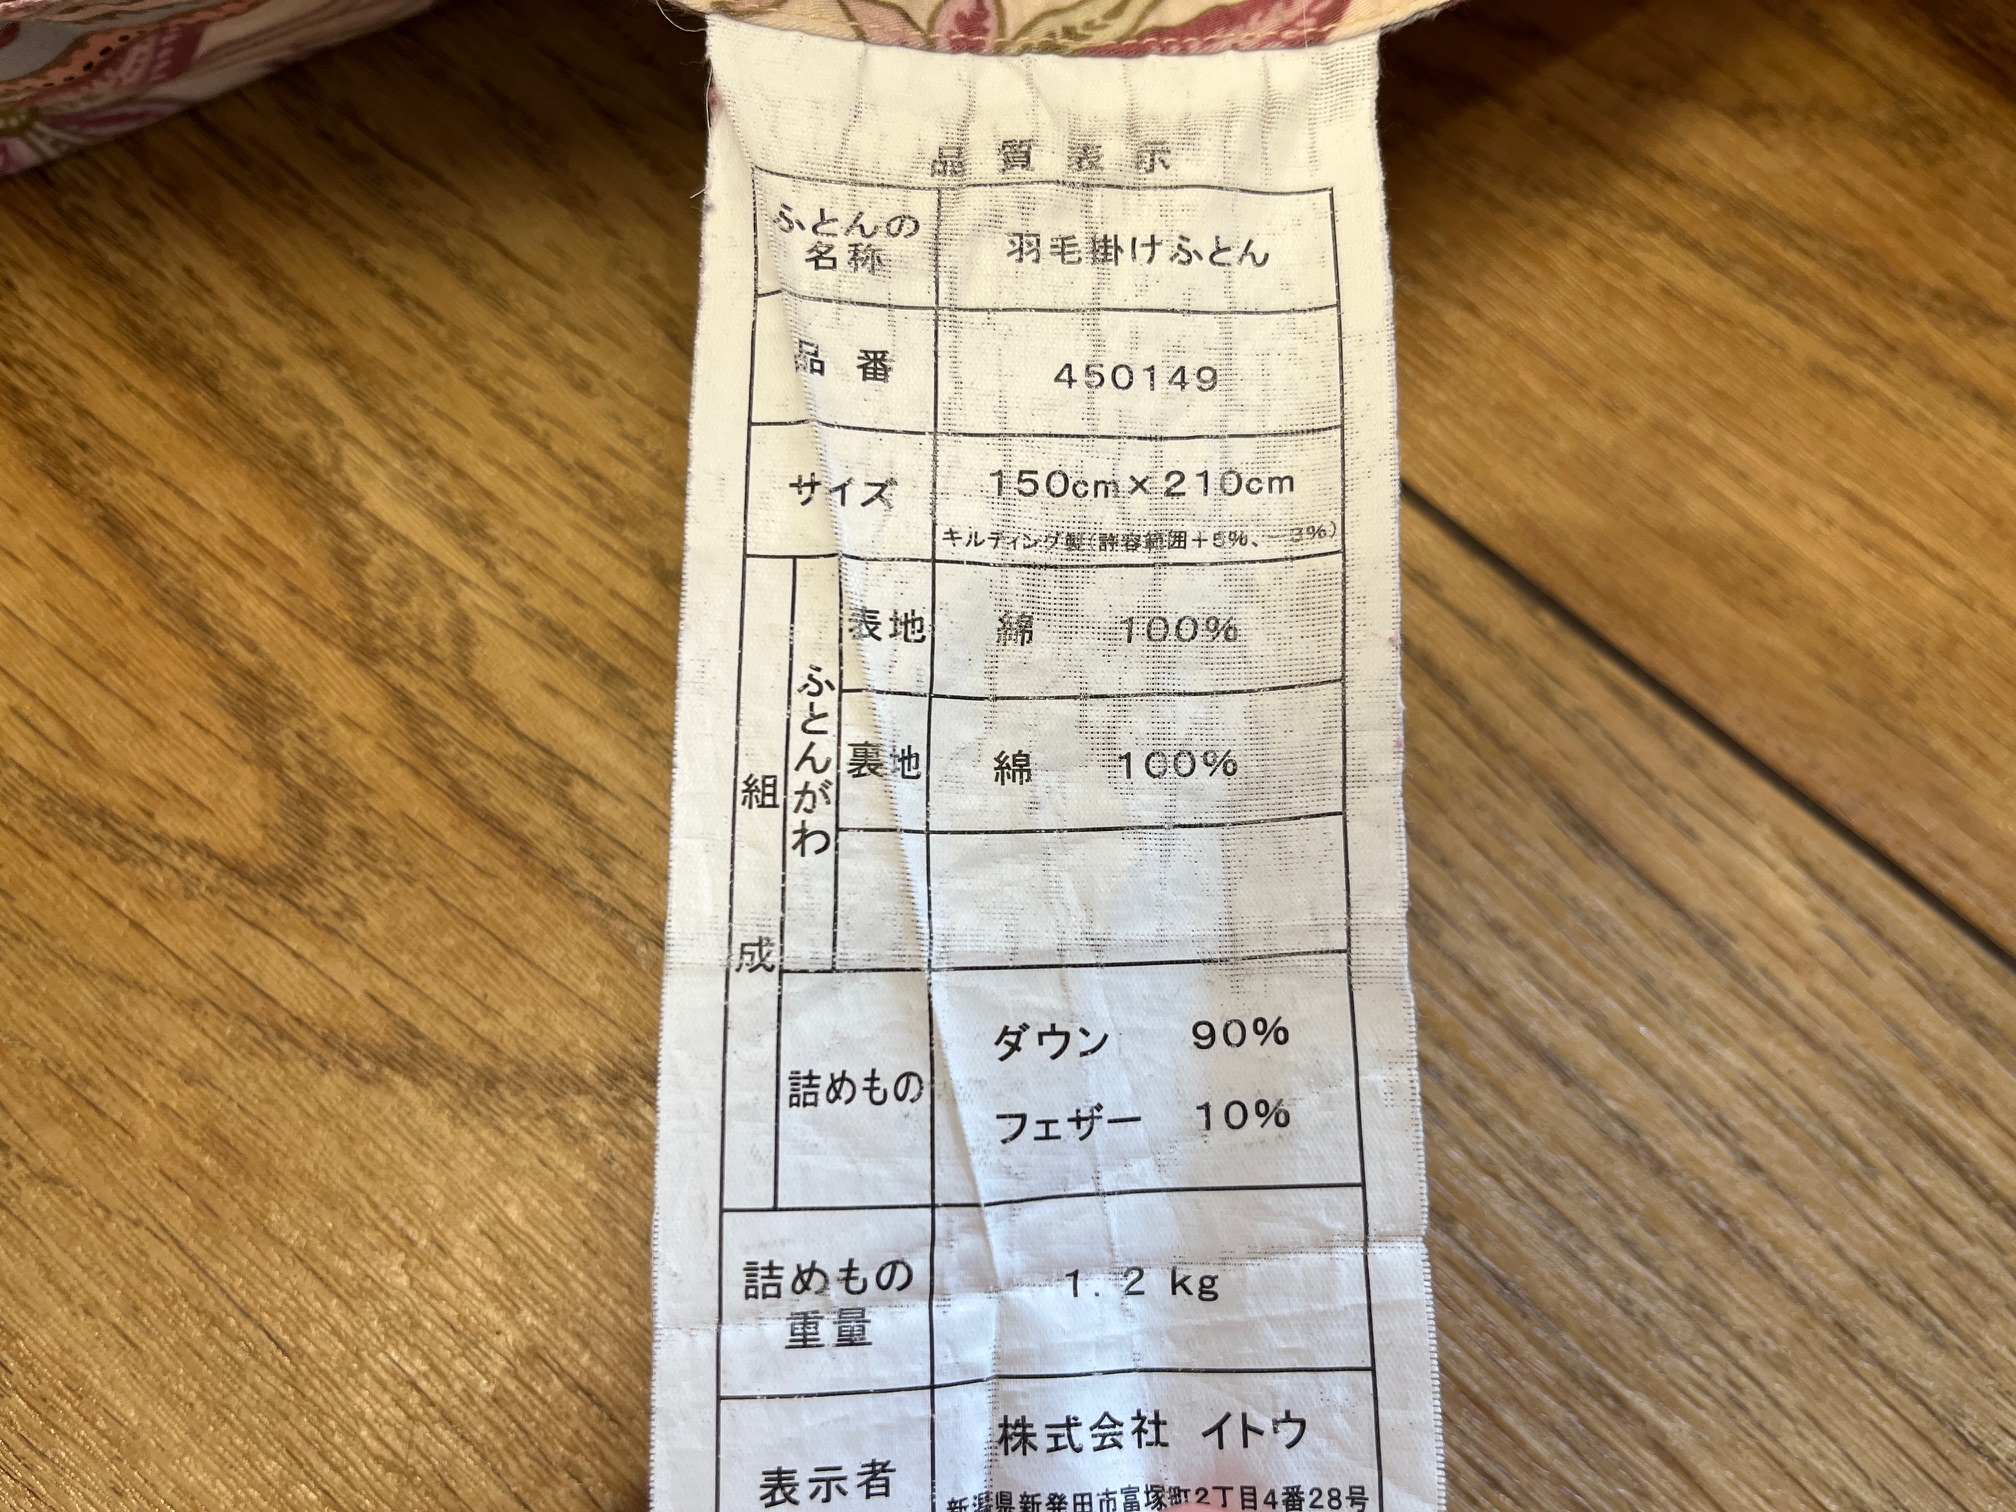 品質表示
ふとんの名称 羽毛掛けふとん
品番 450149
サイズ 150cm×210cm
キルティング製(許容範囲+5%、-3%)
組成
ふとんがわ
表地 綿 100%
裏地 綿 100%
詰めもの ダウン 90%
フェザー 10%
詰めもの重量 1.2kg
表示者 株式会社 イトウ
新潟県新発田市富塚町2丁目4番28号